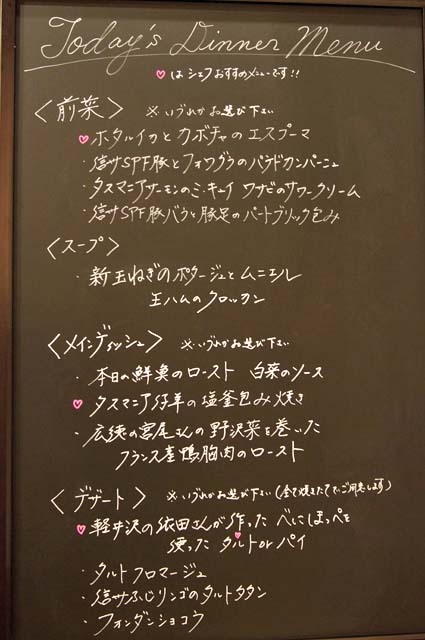 Today's Dinner Menu
♡はシェフおすすめメニューです!!
<前菜> ※いづれかお選び下さい
♡ホタルイカとカボチャのエスプーマ
・信州SPF豚とフォワグラのパテドカンパーニュ
・タスマニアサーモンのミ・キュイ ワサビのサワークリーム
・信州SPF豚バラと豚足のパートブリック包み
<スープ>
・新玉ねぎのポタージュとムニエル
生ハムのクロッカン
<メインディッシュ> ※いづれかお選び下さい
・本日の鮮魚のロースト 白菜のソース
♡タスマニア仔羊の塩釜包み焼き
・広徳の宮尾さんの野沢菜を巻いた
フランス産鴨胸肉のロースト
<デザート> ※いづれかお選び下さい(全て焼きたてでご用意します)
♡軽井沢の依田さんが作った べにほっぺを
使った タルトorパイ
・タルトフロマージュ
・信州ふじリンゴのタルトタタン
・フォンダンショコラ